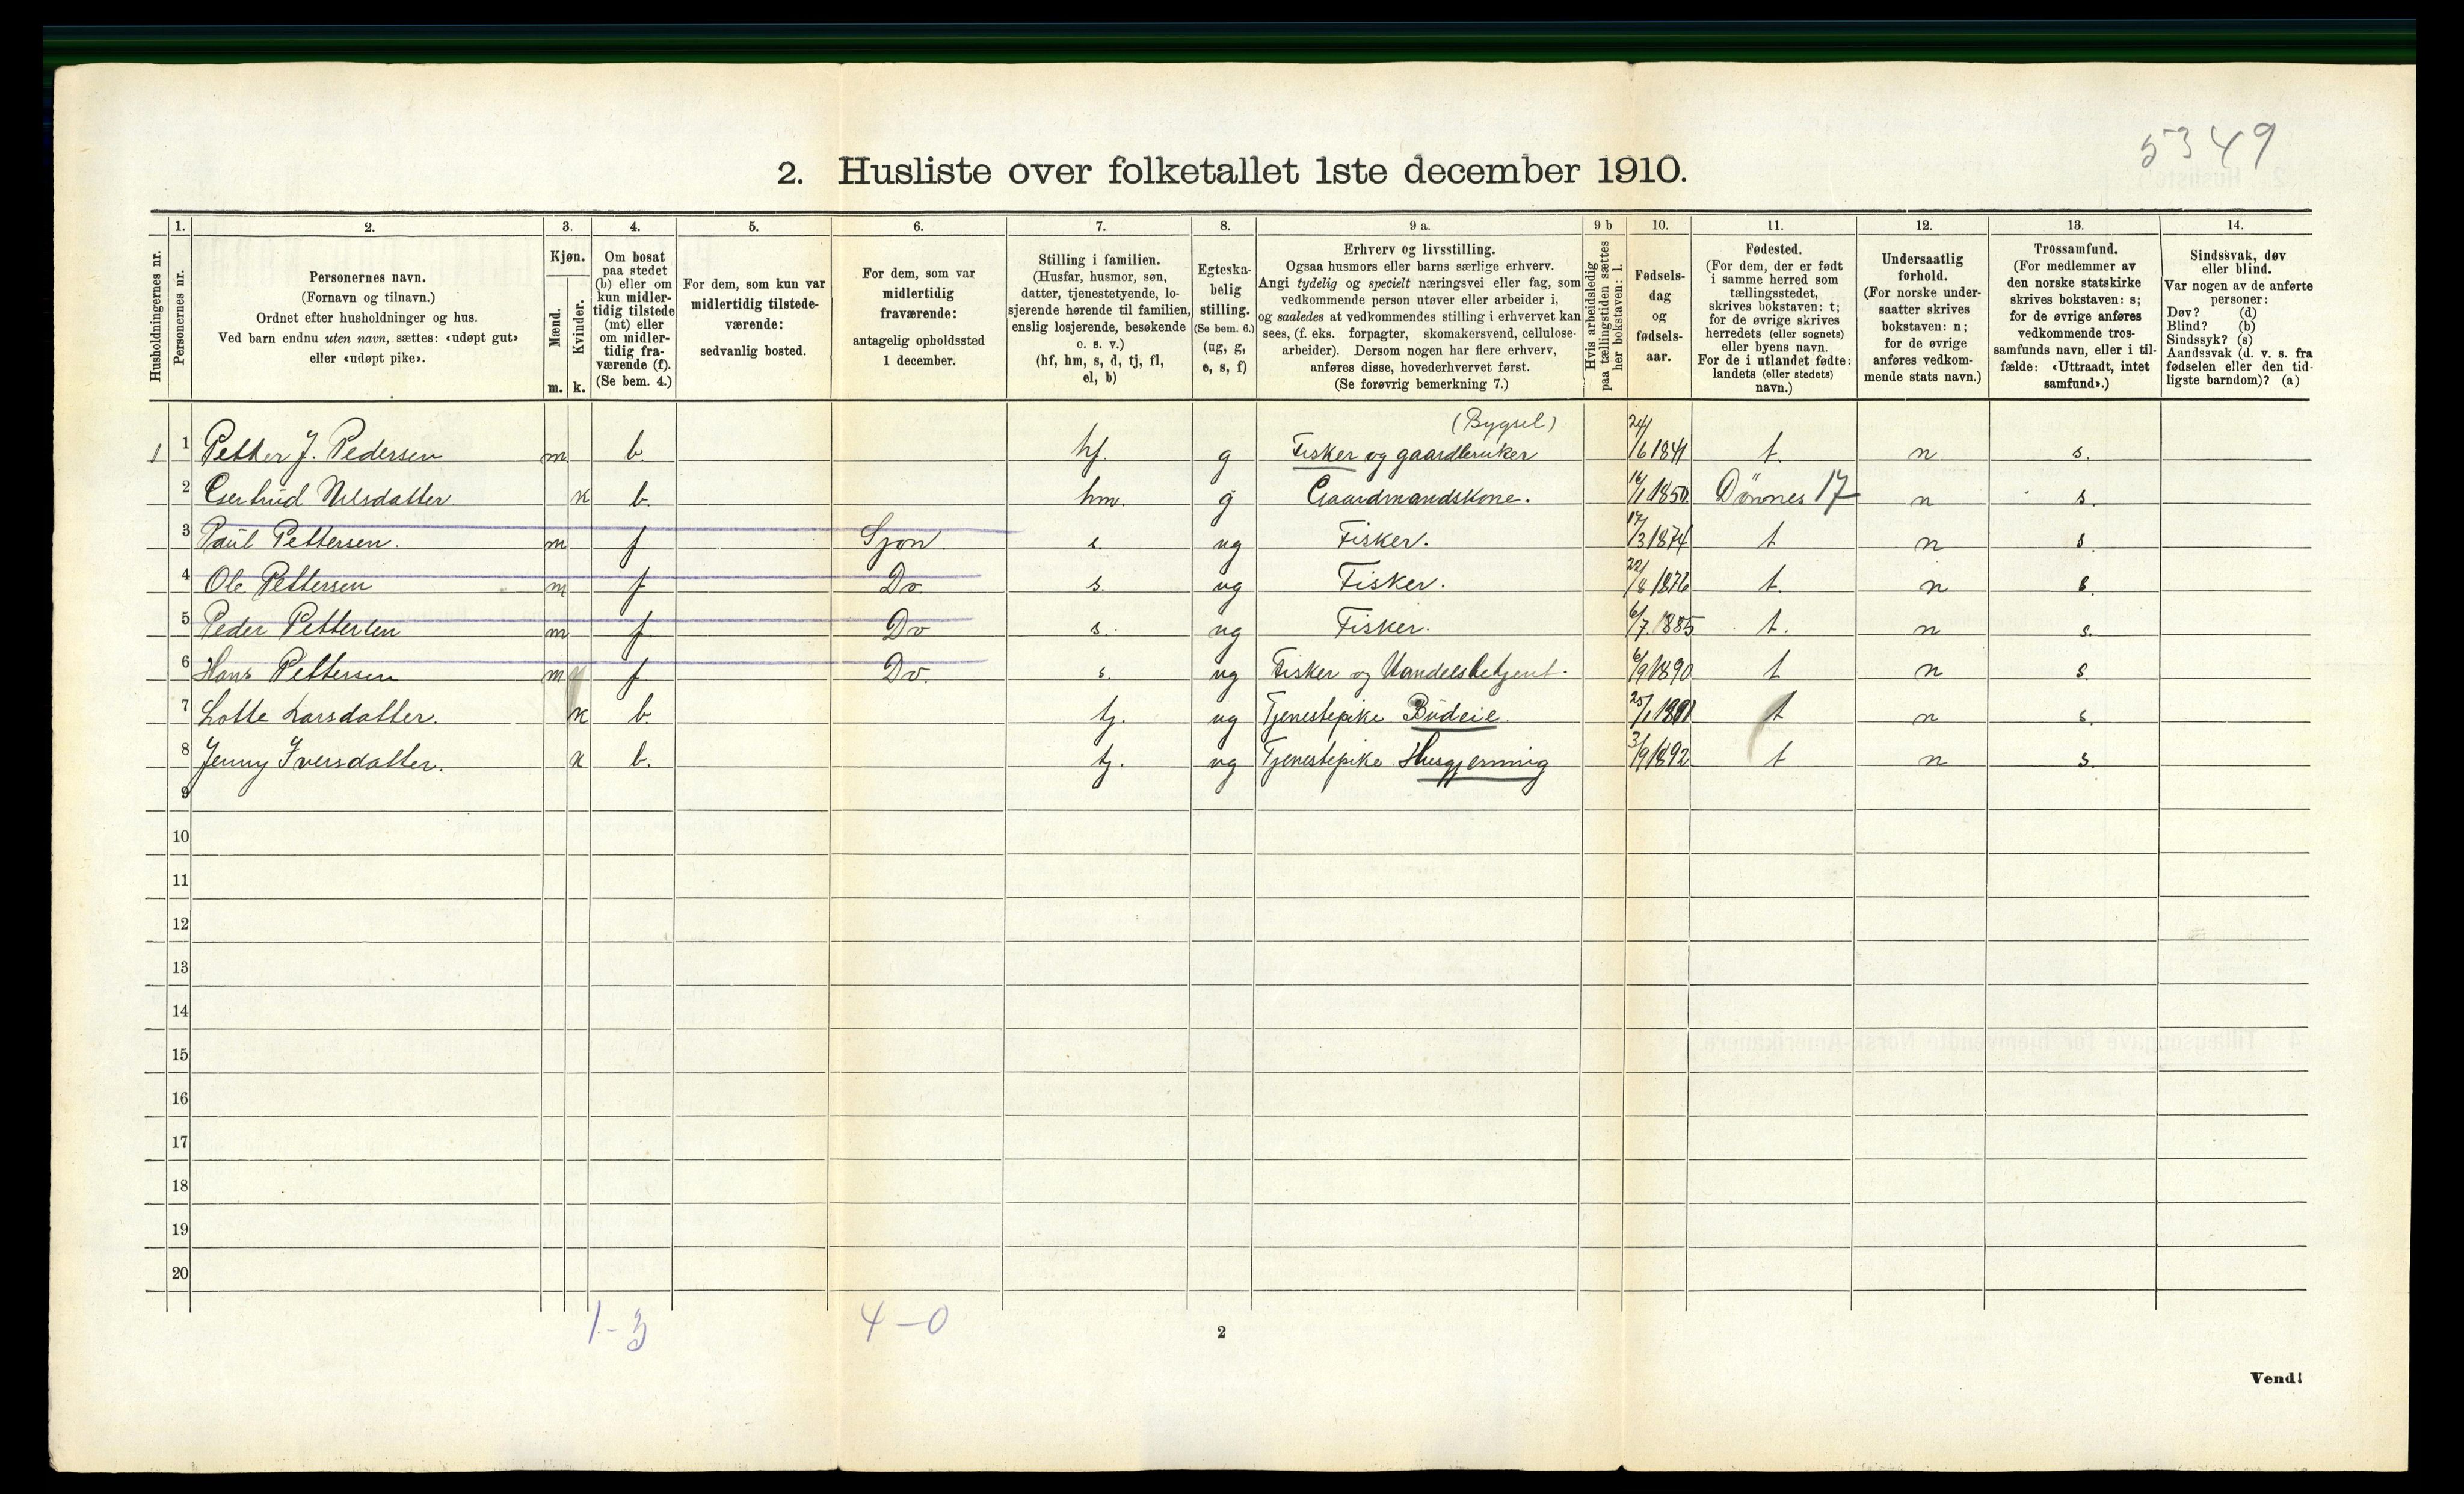 5349
2. Husliste over folketallet 1ste december 1910.
Husholdningernes nr.
1.
Personernes nr.
2.
Personernes navn.
(Fornavn og tilnavn.)
Ordnet efter husholdninger og hus.
Ved barn endnu uten navn, sættes: «udøpt gut»
eller «udøpt pike».
3.
Kjøn.
Mænd.
Kvinder.
m. k.
4.
Om bosat
paa stedet
(b) eller om
kun midler-
tidig tilstede
(mt) eller
om midler-
tidig fra-
værende (f).
(Se bem. 4.)
5.
For dem, som kun var
midlertidig tilstede-
værende:
sedvanlig bosted.
6.
For dem, som var
midlertidig
fraværende:
antagelig opholdssted
1 december.
7.
Stilling i familien.
(Husfar, husmor, søn,
datter, tjenestetyende, lo-
sjerende hørende til familien,
enslig losjerende, besøkende
o. s. v.)
(hf, hm, s, d, tj, fl,
el, b)
8.
Egteska-
belig
stilling.
(Se bem. 6.)
(ug, g,
e, s, f)
9 a.
Erhverv og livsstilling.
Ogsaa husmors eller barns særlige erhverv.
Angi tydelig og specielt næringsvei eller fag, som
vedkommende person utøver eller arbeider i,
og saaledes at vedkommendes stilling i erhvervet kan
sees, (f. eks. forpagter, skomakersvend, cellulose-
arbeider). Dersom nogen har flere erhverv,
anføres disse, hovederhvervet først.
(Se forøvrig bemerkning 7.)
9 b
Hvis arbeidsledig
paa tællingstiden sættes
her bokstaven: l.
10.
Fødsels-
dag
og
fødsels-
aar.
11.
Fødested.
(For dem, der er født
i samme herred som
tællingsstedet,
skrives bokstaven: t;
for de øvrige skrives
herredets (eller sognets)
eller byens navn.
For de i utlandet fødte:
landets (eller stedets)
navn.)
12.
Undersaatlig
forhold.
(For norske under-
saatter skrives
bokstaven: n;
for de øvrige
anføres vedkom-
mende stats navn.)
13.
Trossamfund.
(For medlemmer av
den norske statskirke
skrives bokstaven: s;
for de øvrige anføres
vedkommende tros-
samfunds navn, eller i til-
fælde: «Uttraadt, intet
samfund».)
14.
Sindssvak, døv
eller blind.
Var nogen av de anførte
personer:
Døv? (d)
Blind? (b)
Sindssyk? (s)
Aandssvak (d. v. s. fra
fødselen eller den tid-
ligste barndom)? (a)
(Bygsel)
1 1 Petter J. Pedersen m b. hf. g Fisker og gaardbruker 24/6 1841 t. n s.
2 Gertrud Nilsdatter k b. hm. g Gaardmandskone. 16/1 1850. Dönnes 17 n s.
3 Paul Pettersen. m f Sjon. s. ug Fisker. 17/3 1874 t n s
4 Ole Pettersen m f Do. s. ug Fisker. 22/8 1876 t. n s.
5 Peder Pettersen m f Do s. ug Fisker. 6/7. 1885 t. n s.
6 Hans Pettersen m f Do. s. ug Fisker og Handelsbetjent. 6/9 1890 t n s
7 Lotte Larsdatter. k b. tj. ug Tjenestepike Budeie. 25/1 1891 t n s.
8 Jenny Iversdatter. k b. tj. ug Tjenestepike Husgjerning 3/9 1892 t n s.
9
10
11
12
13
14
15
16
17
18
19
20
1-3 4-0
2
Vend!